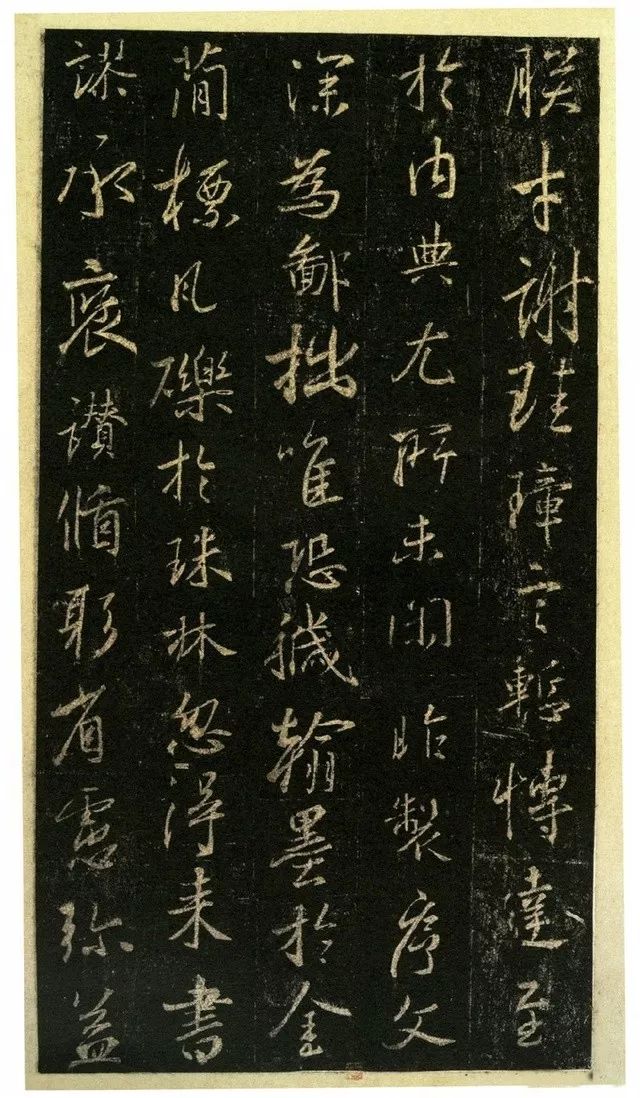 朕才謝珪璋言慙博達至
於內典尤所未閑昨製序文
深為鄙拙唯恐穢翰墨於金
簡標瓦礫於珠林忽得来書
謬承褒讚循躬省慮弥益